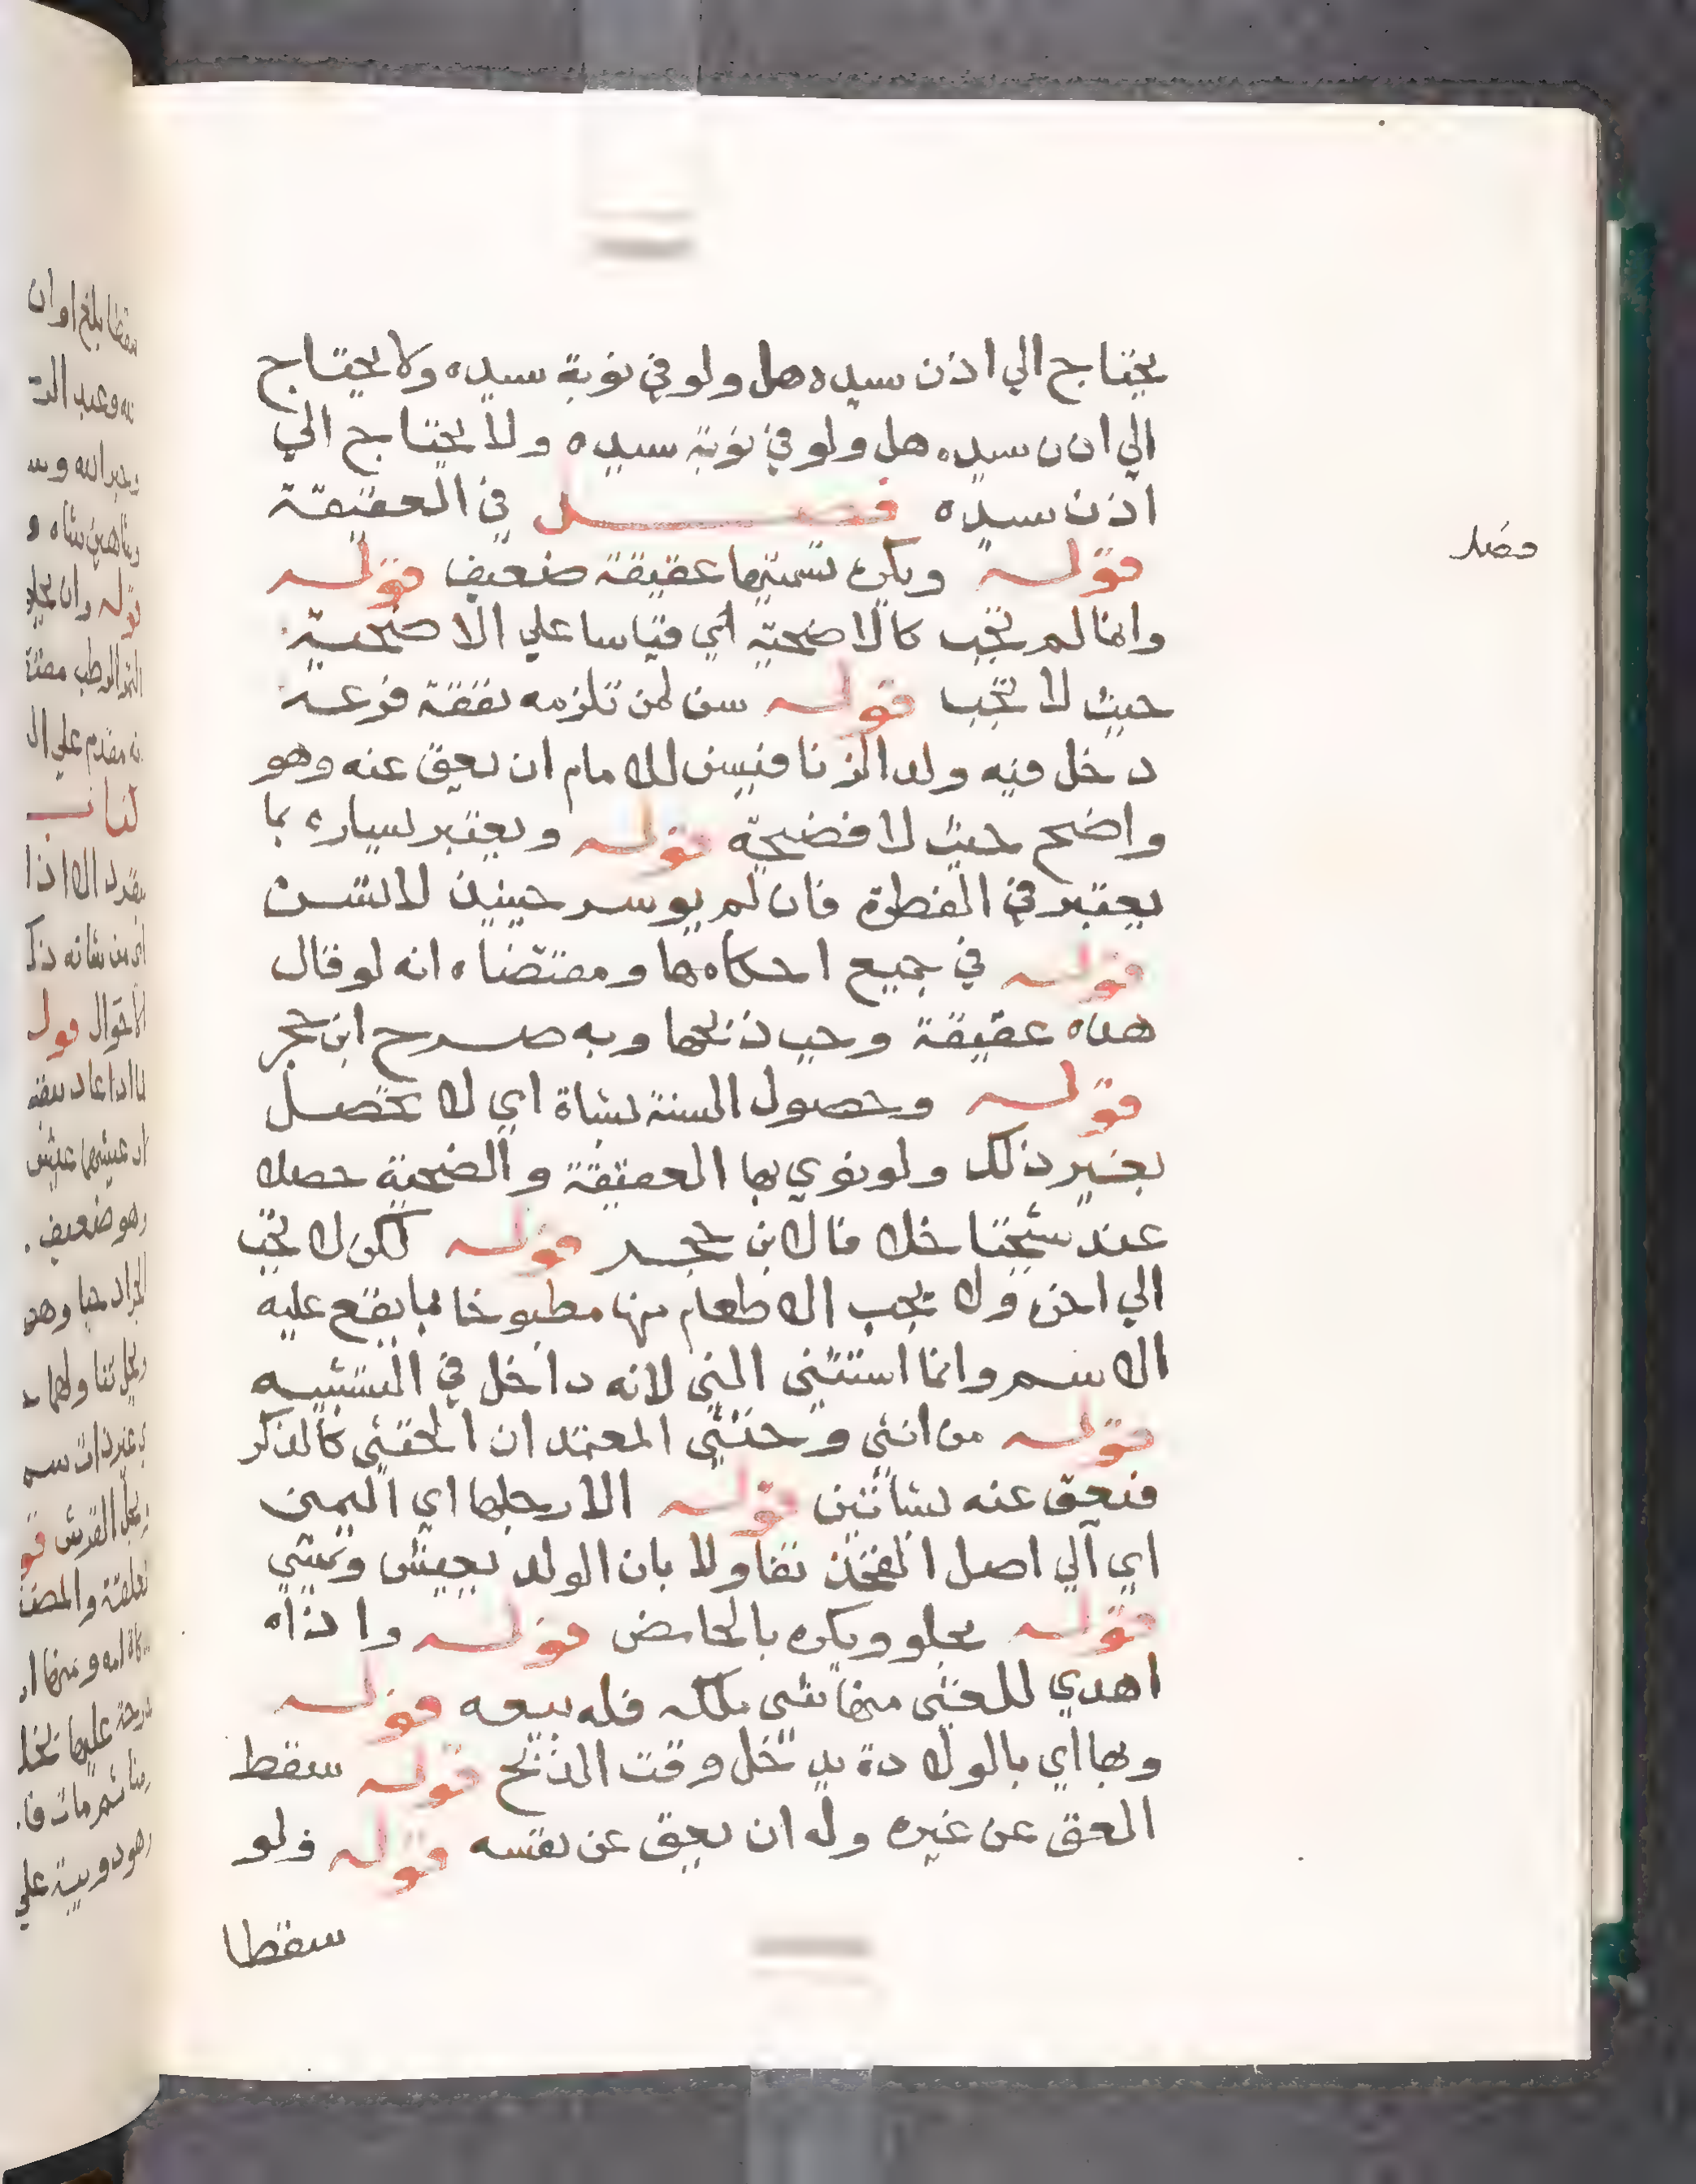 يحتاج الي اذن سيده هل ولو في نوبة سيده ولا يحتاج
الي اذن سيده هل ولو في نوبة سيده ولا يحتاج الي
اذن سيده فصل في العقيقة
فصل
قوله ويكره تسميتها عقيقة ضعيف قوله
وانما لم تجب كالاضحية اي قياسا علي الاضحية
حيث لا تجب قوله سن لمن تلزمه نفقة فرعه
دخل فيه ولد الزنا فيسن للامام ان يعق عنه وهو
واضح حيث لا فضيحة قوله ويعتبر يساره بما
يعتبر في الفطرة فان لم يوسر حينيذ لا تسن
قوله في جميع احكامها ومقتضاه انه لو قال
هذه عقيقة وجب ذبحها وبه صرح ابن حجر
قوله وحصول السنة بشاة اي لا تحصل
بغير ذلك ولو نوي بها العقيقة والضحية حصلا
عند شيخنا خلافا لابن حجر قوله لكن لا تجب
الي اخره ولا يجب الاطعام منها مطبوخا بما يقع عليه
الاسم وانما استثني الني لانه داخل في التشبيه
قوله من انثي وخنثي المعتمد ان الخنثي كالذكر
فنعق عنه بشاتين قوله الا رجلها اي اليمين
اي الي اصل الفخذ تفاولا بان الولد يعيش ويمشي
قوله بحلو ويكره بالحامض قوله واذاه
اهدي للغني منها شي ملكه فله بيعه قوله
وبها اي بالولادة يدخل وقت الذبح قوله سقط
العق عن غيره وله ان يعق عن نفسه قوله ولو
سقطا